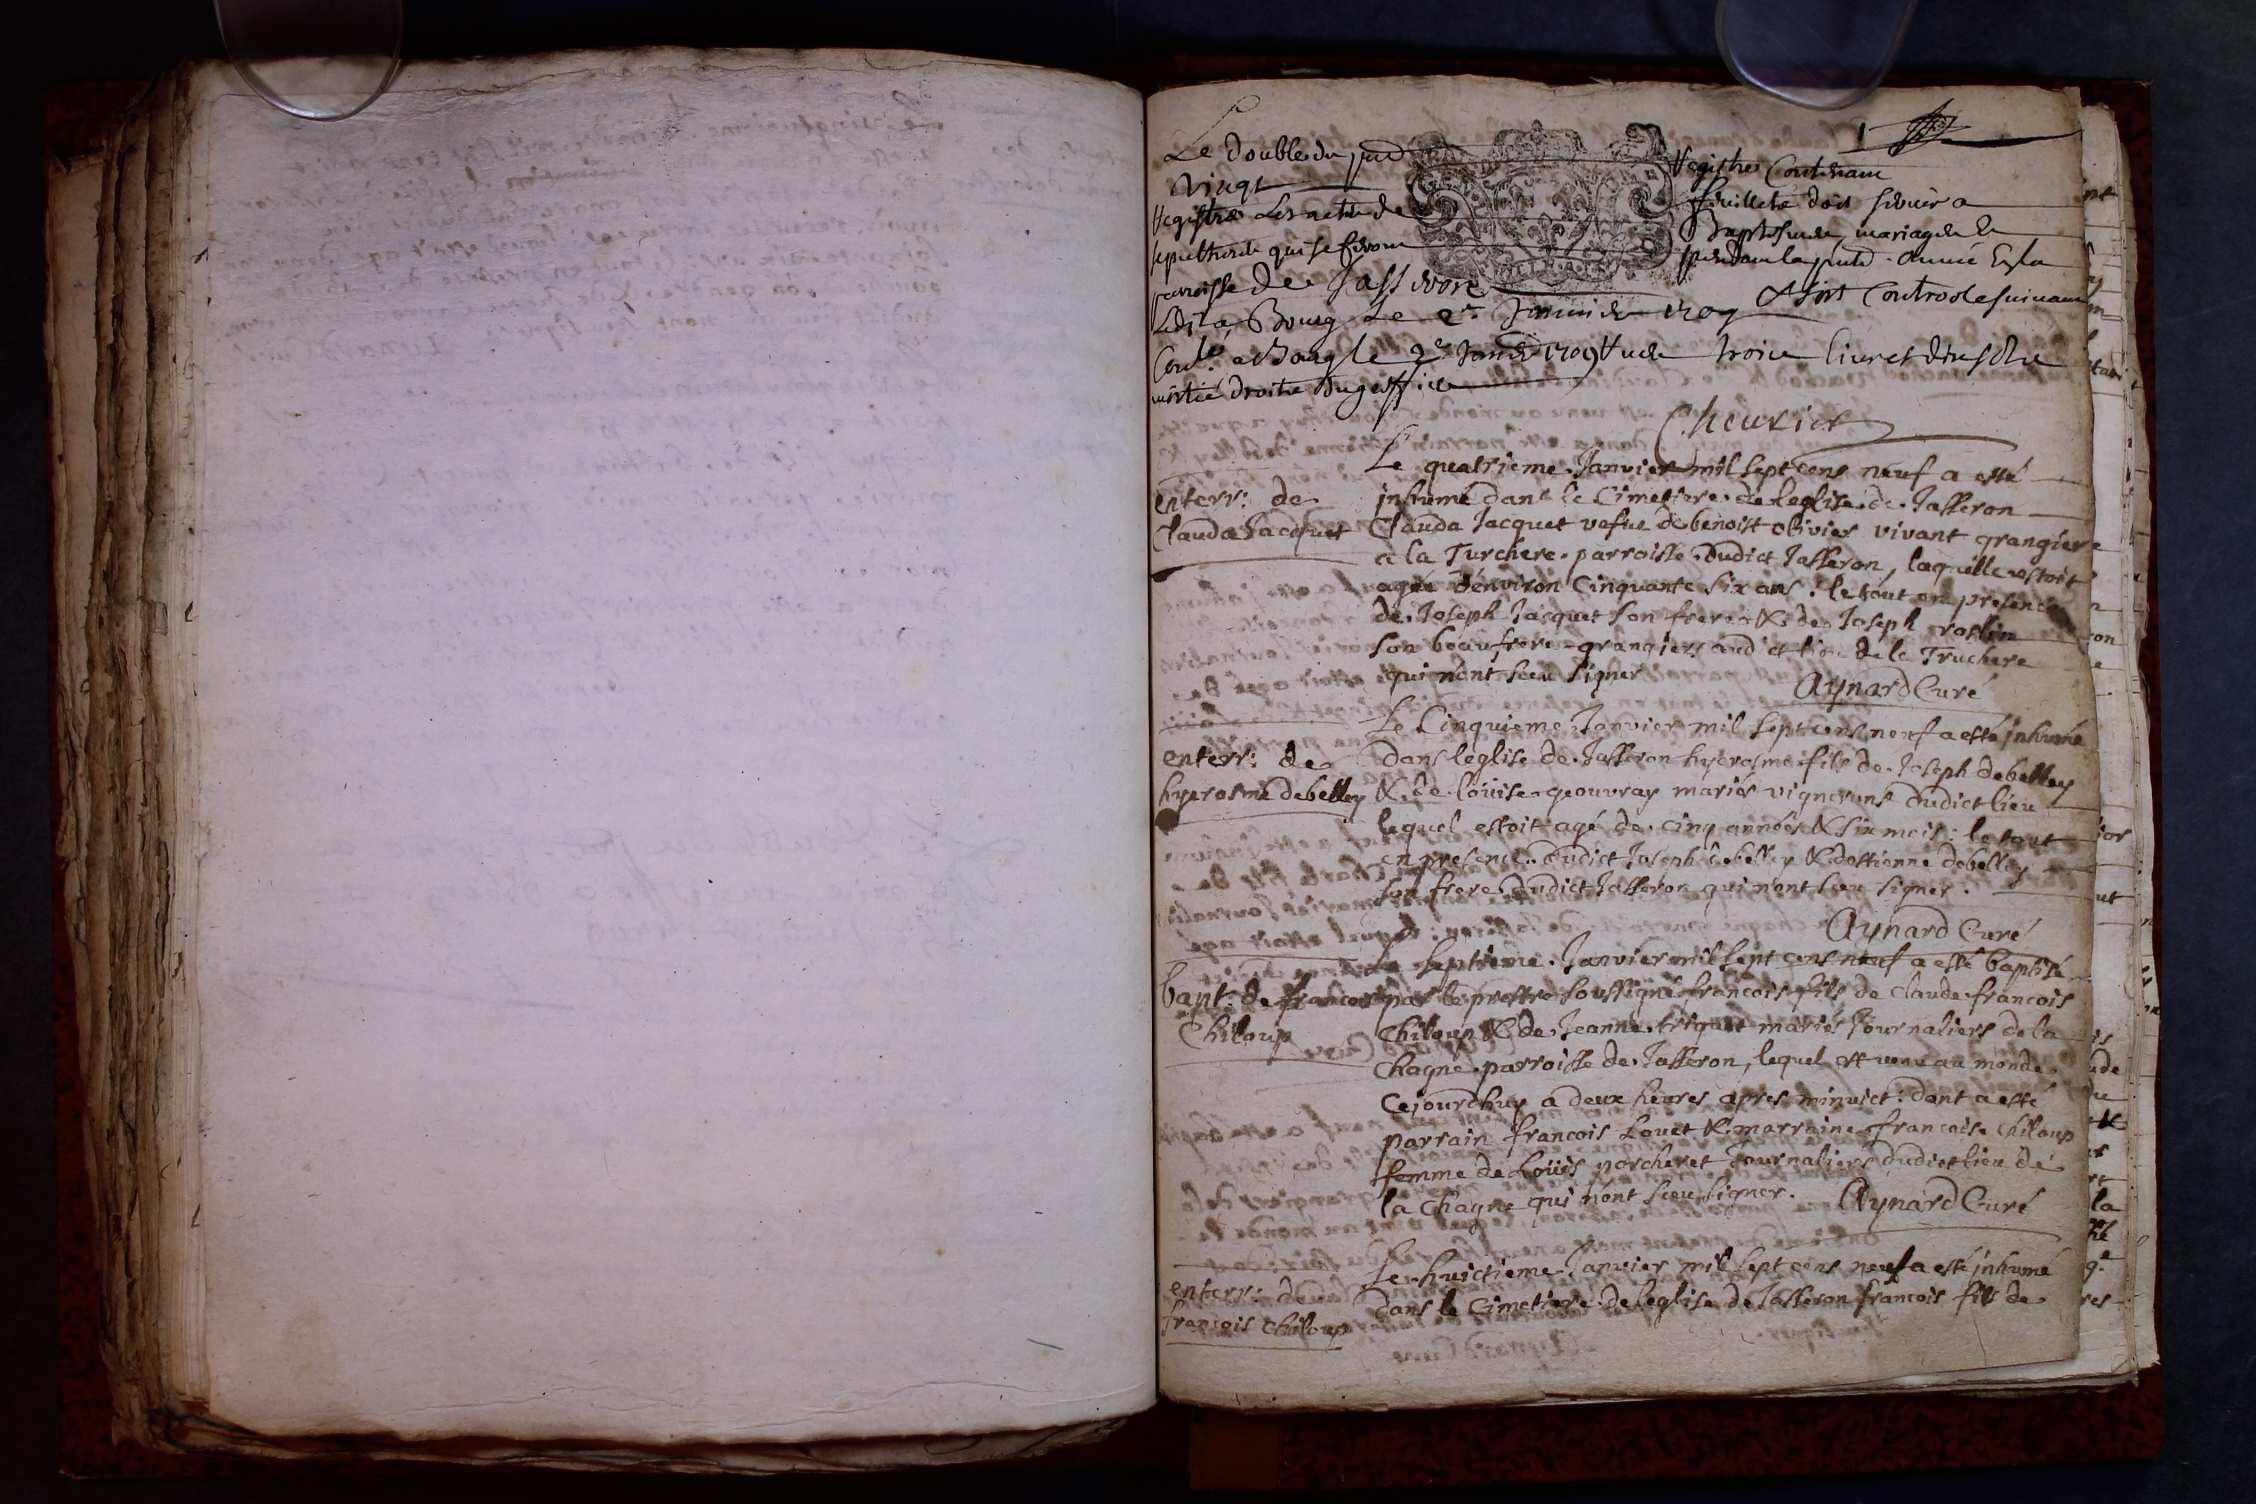 1
Le double du pnt Registre Contenant
Vingt feuillets doit servir a
Registrer les actes de baptesmes, mariages et
sepultures qui se feront pendant la pnte année En la
paroisse de Jasseron & sera Controolé suivant
Ledit a Bourg Le 2e Janvier 1709
Conlé a Bourg le 2e Janv 1709 Reçu treize livres dix solz
moitié droits du greffier
Cheurier
Le quatrieme Janvier mil sept cens neuf a esté
enterr: de
Clauda Jacquet
inhumé dans le Cimettere de leglise de Jasseron
Clauda Jacquet vefue de benoist olivier vivant grangiere
a la Turchere parroisse dudict Jasseron, laquelle estoit
agée denviron Cinquante six ans: le tout en presence
de Joseph Jacquet son frere & de Joseph roslin
son beaufrere grangiers audict lieu de la Truchere
qui n'ont sceu signer
Aynard Curé
Le Cinquieme Janvier mil sept cens neuf a esté inhumé
enterr: de
hyerosme debelley
dans leglise de Jasseron hyerosme fils de Joseph debelley
& de loüise geouvray mariés vignerons dudict lieu
lequel estoit agé de cinq années & six mois: le tout
en presence dudict Joseph debelley & destienne debelley
son frere dudict Jasseron qui n'ont sceu signer.
Aynard Curé
Le septieme Janvier mil sept cens neuf a esté baptisé
bapt: de francois
Chiloup
par le prestre soussigné francois fils de Claude francois
Chiloup & de Jeanne triquet mariés Journaliers de la
Chagne parroisse de Jasseron, lequel est venu au monde
Cejourdhuy a deux heures apres minuict: dont a esté
parrain francois Louet & marraine francoise Chiloup
femme de Loüis porcheret Journaliers dudict lieu de
la Chagne qui n'ont sceu signer. Aynard Curé
Le huictieme Janvier mil sept cens neuf a esté inhumé
enterr: de
francois Chiloup
dans le Cimetiere de leglise de Jasseron francois fils de